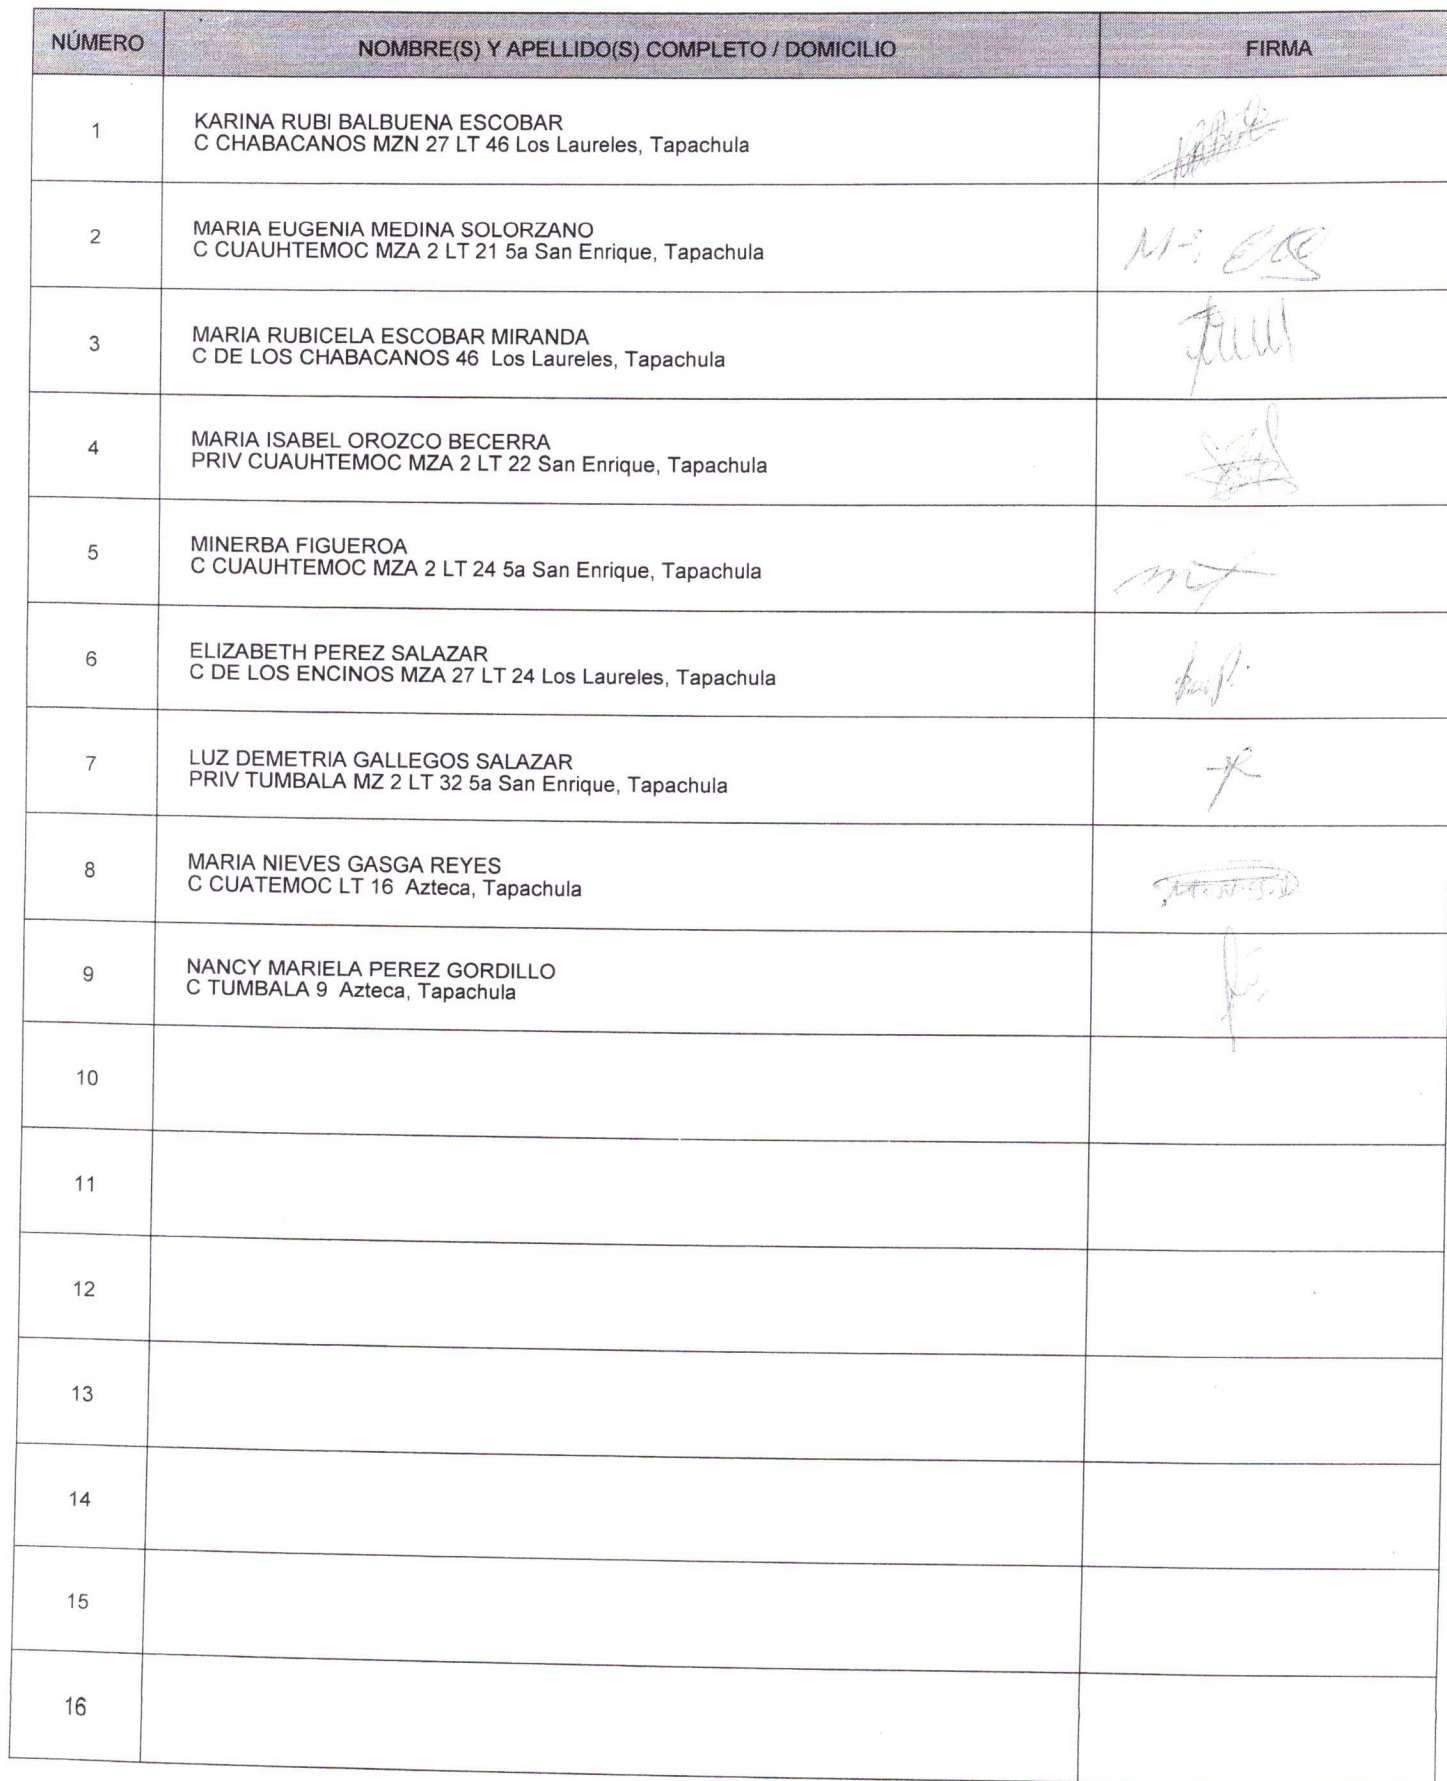 NÚMERO NOMBRE(S) Y APELLIDO(S) COMPLETO / DOMICILIO FIRMA
1 KARINA RUBI BALBUENA ESCOBAR
C CHABACANOS MZN 27 LT 46 Los Laureles, Tapachula
2 MARIA EUGENIA MEDINA SOLORZANO
C CUAUHTEMOC MZA 2 LT 21 5a San Enrique, Tapachula
3 MARIA RUBICELA ESCOBAR MIRANDA
C DE LOS CHABACANOS 46 Los Laureles, Tapachula
4 MARIA ISABEL OROZCO BECERRA
PRIV CUAUHTEMOC MZA 2 LT 22 San Enrique, Tapachula
5 MINERBA FIGUEROA
C CUAUHTEMOC MZA 2 LT 24 5a San Enrique, Tapachula
6 ELIZABETH PEREZ SALAZAR
C DE LOS ENCINOS MZA 27 LT 24 Los Laureles, Tapachula
7 LUZ DEMETRIA GALLEGOS SALAZAR
PRIV TUMBALA MZ 2 LT 32 5a San Enrique, Tapachula
8 MARIA NIEVES GASGA REYES
C CUATEMOC LT 16 Azteca, Tapachula
9 NANCY MARIELA PEREZ GORDILLO
C TUMBALA 9 Azteca, Tapachula
10
11
12
13
14
15
16